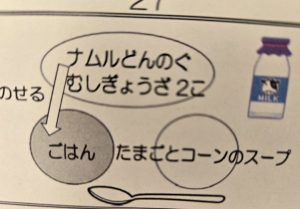 27
ナムルどんのぐ
むしぎょうざ2こ
のせる
MILK
ごはん
たまごとコーンのスープ